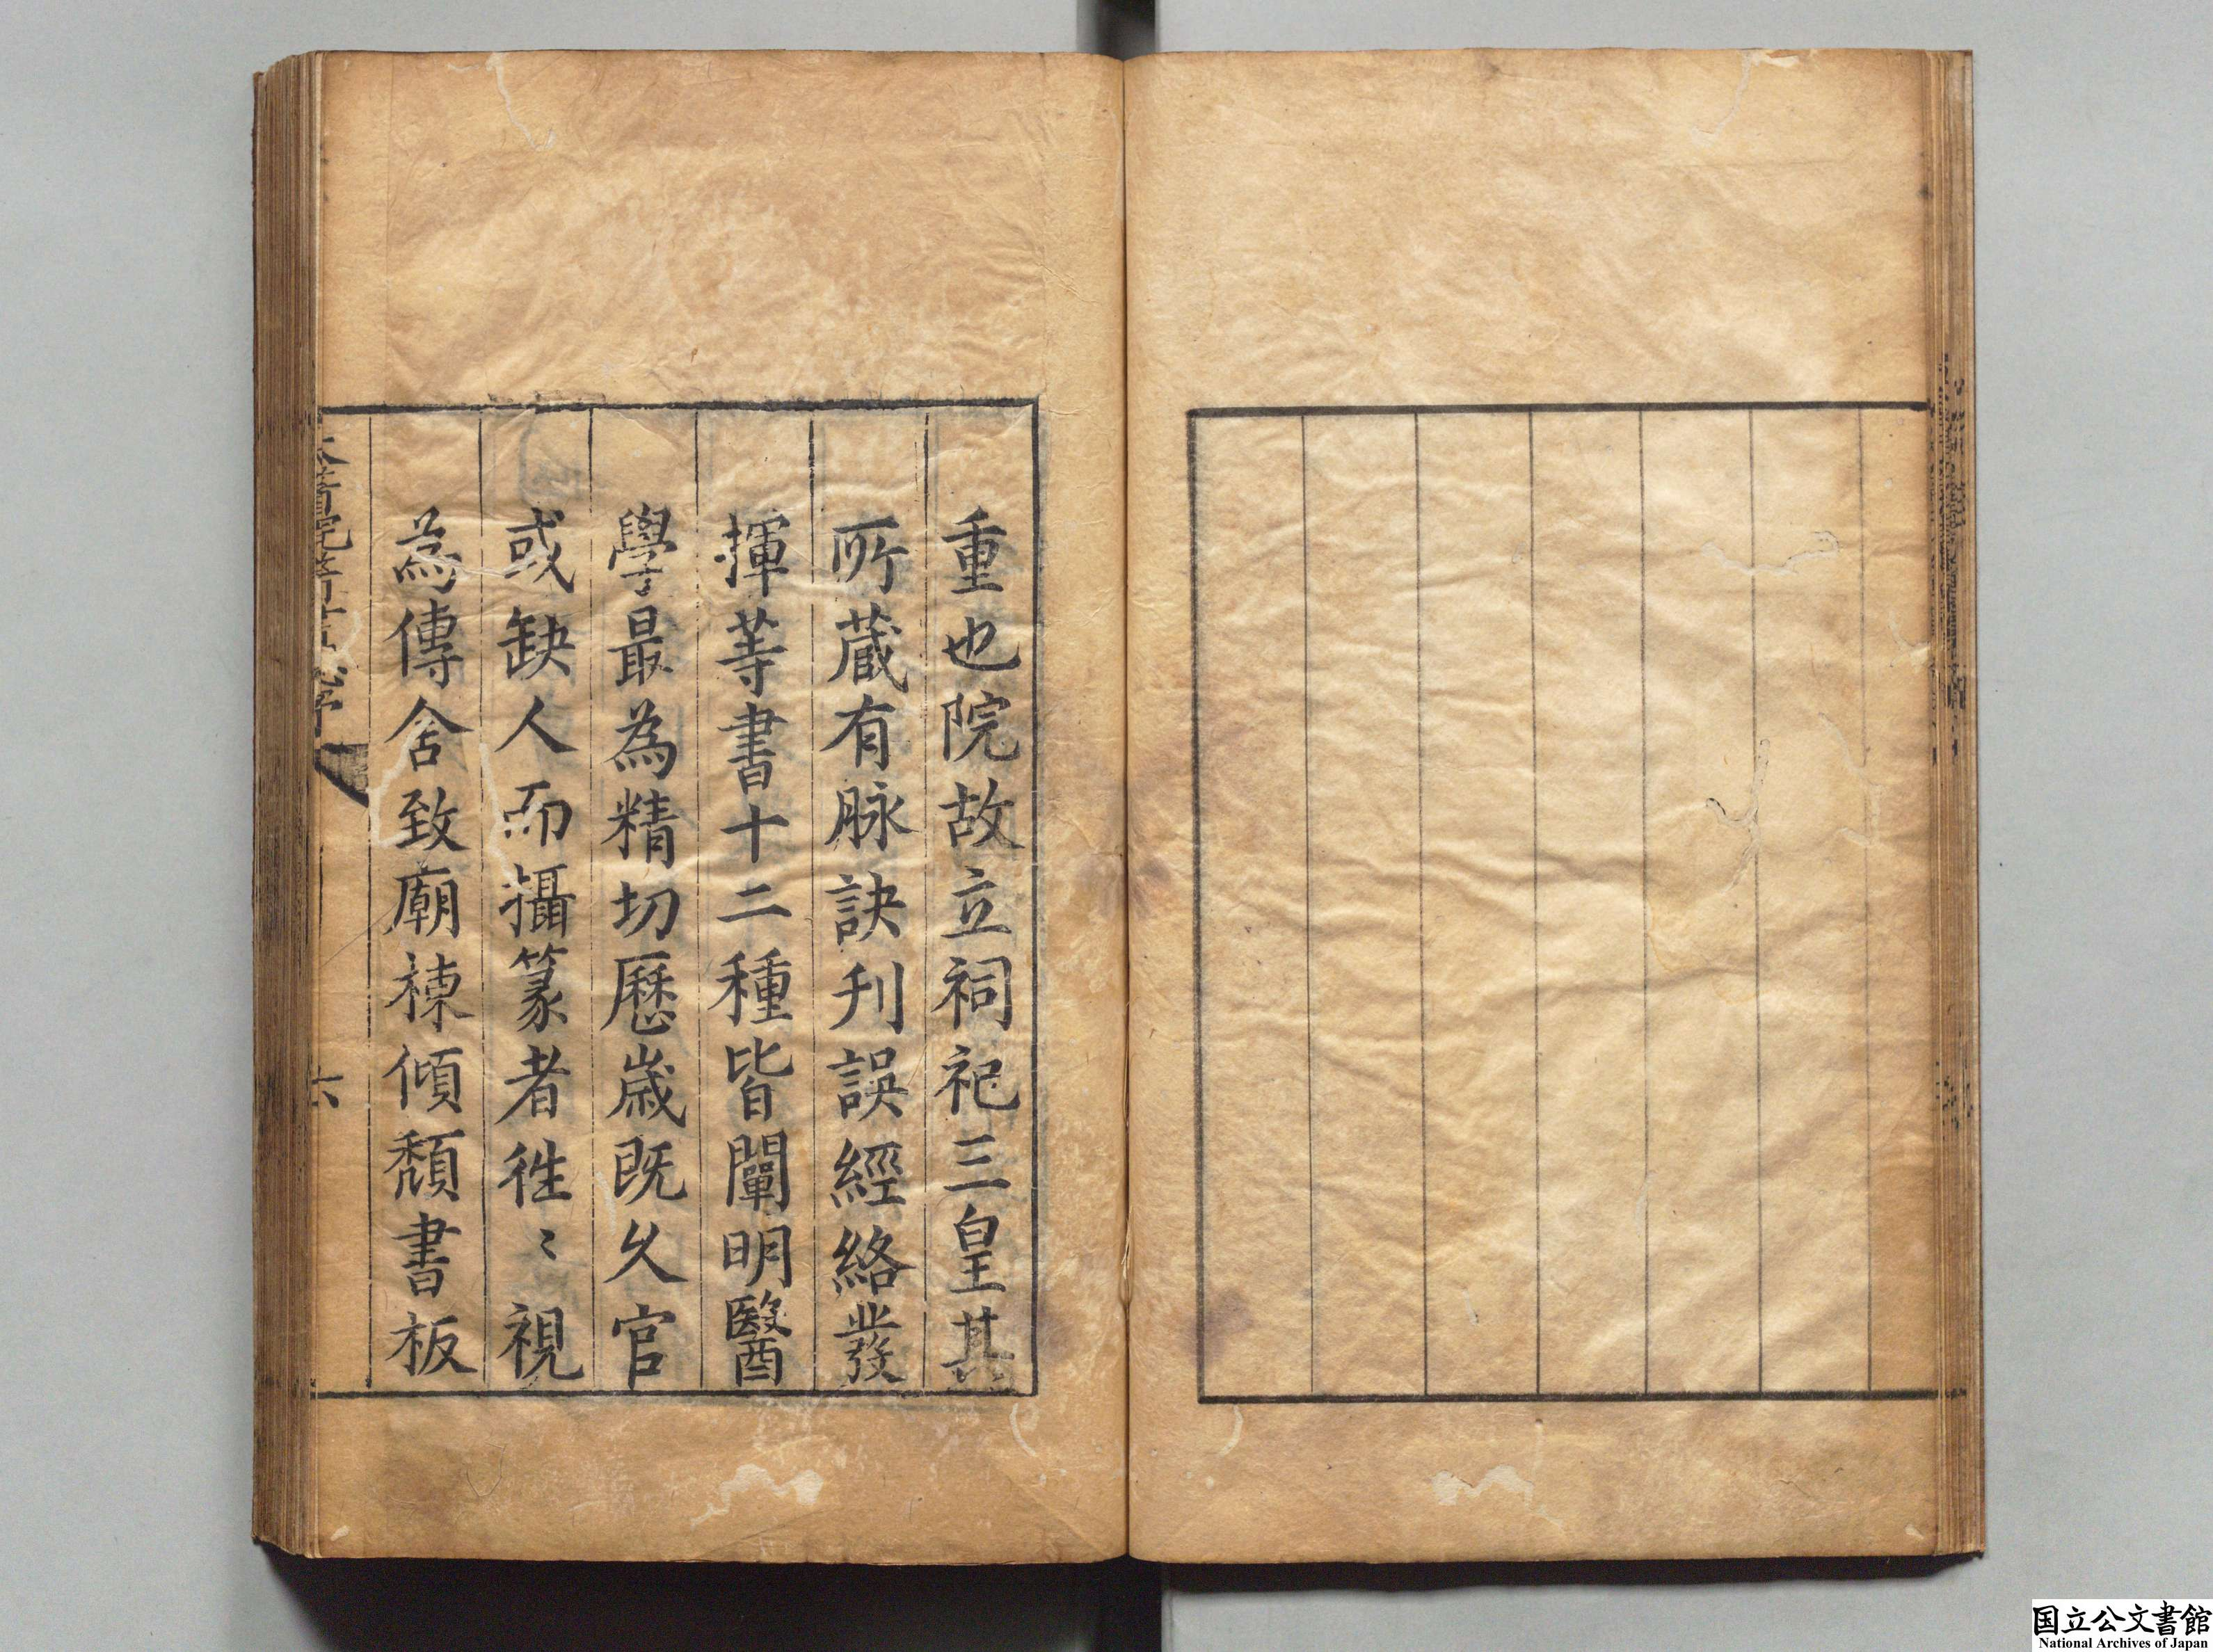 重也院故立祠祀三皇其
所蔵有脉訣刋誤經絡發
揮䓁書十二種皆闡明醫
學最為精切歷歳既乆官
或缺人而攝篆者徃〻視
為傳舍致廟棟傾頽書板
六
国立公文書館
National Archives of Japan